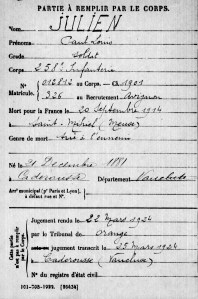 PARTIE À REMPLIR PAR LE CORPS.
Nom JULIEN
Prénoms Paul Louis
Grade soldat
Corps 258e Infanterie
N° 012812 au Corps. — Cl. 1901
Matricule. 326 au Recrutement Avignon
Mort pour la France le 20 Septembre 1914
à Saint-Mihiel (Meuse)
Genre de mort tué à l'ennemi
Né le 21 Décembre 1881
à Caderousse Département Vaucluse
Arrt municipal (pr Paris et Lyon),
à défaut rue et N°.
Cette partie
n'est pas à remplir
par le Corps.
Jugement rendu le 22 Mars 1934
par le Tribunal de Orange
jugement transcrit le 25 Mars 1934
à Caderousse (Vaucluse)
N° du registre d'état civil